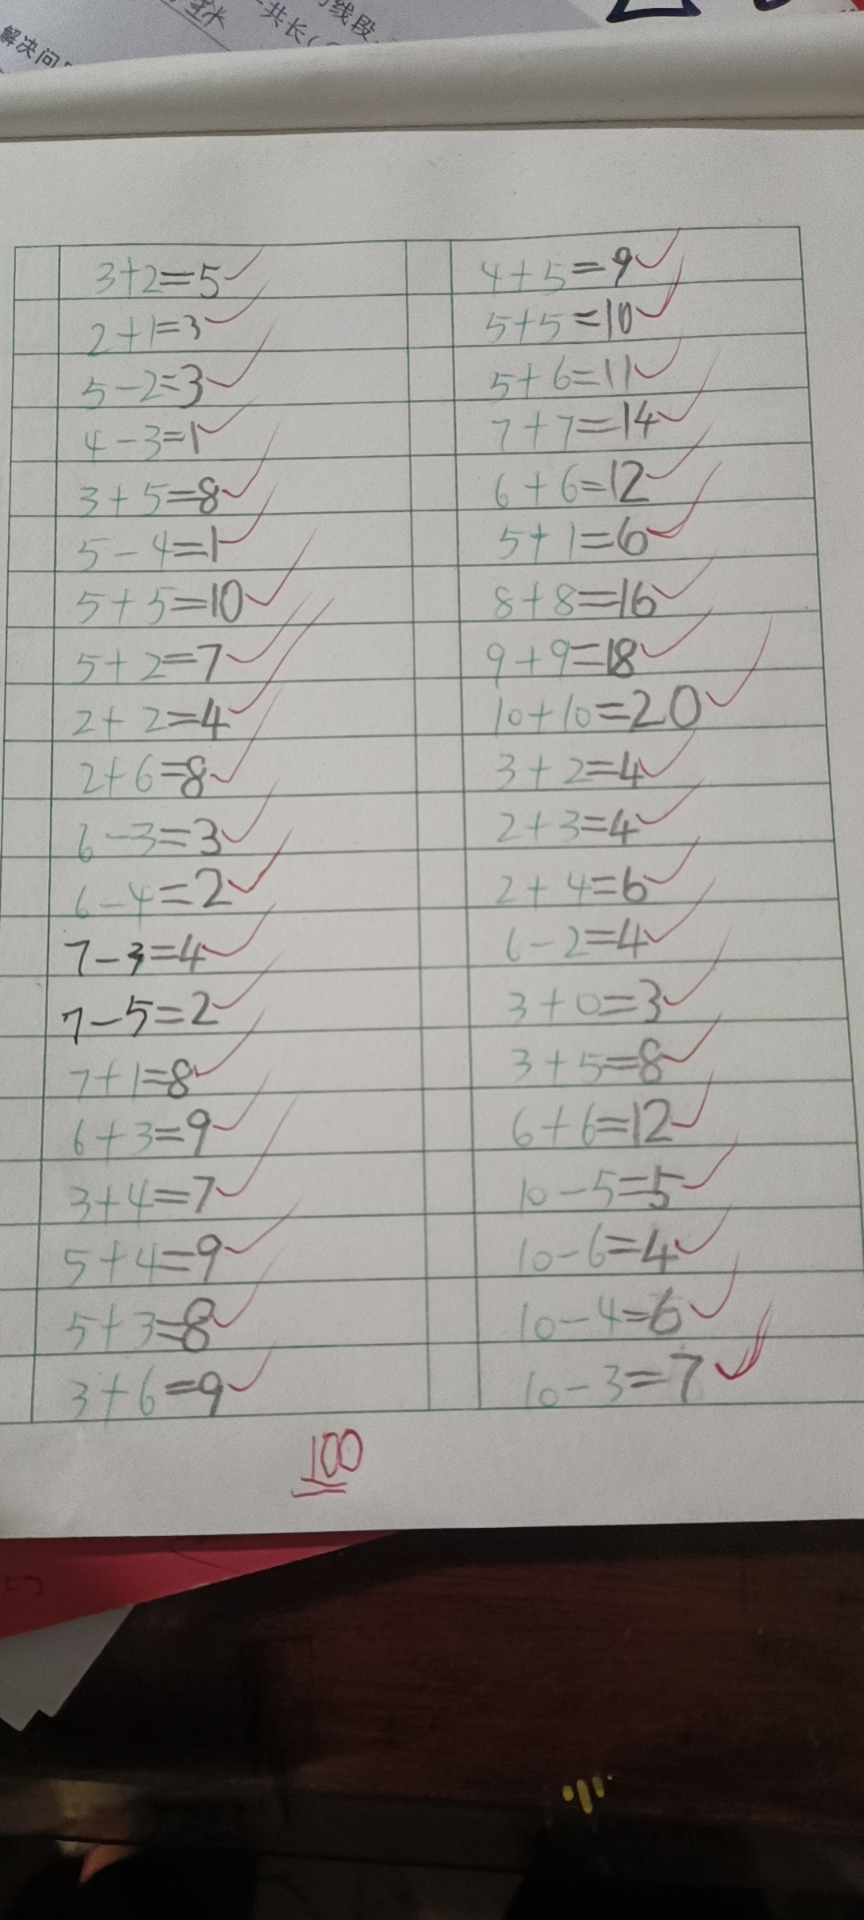 解决问
一共长(
线段
3+2=5
2+1=3
5-2=3
4-3=1
3+5=8
5-4=1
5+5=10
5+2=7
2+2=4
2+6=8
6-3=3
6-4=2
7-3=4
7-5=2
7+1=8
6+3=9
3+4=7
5+4=9
5+3=8
3+6=9
4+5=9
5+5=10
5+6=11
7+7=14
6+6=12
5+1=6
8+8=16
9+9=18
10+10=20
3+2=4
2+3=4
2+4=6
6-2=4
3+0=3
3+5=8
6+6=12
10-5=5
10-6=4
10-4=6
10-3=7
100